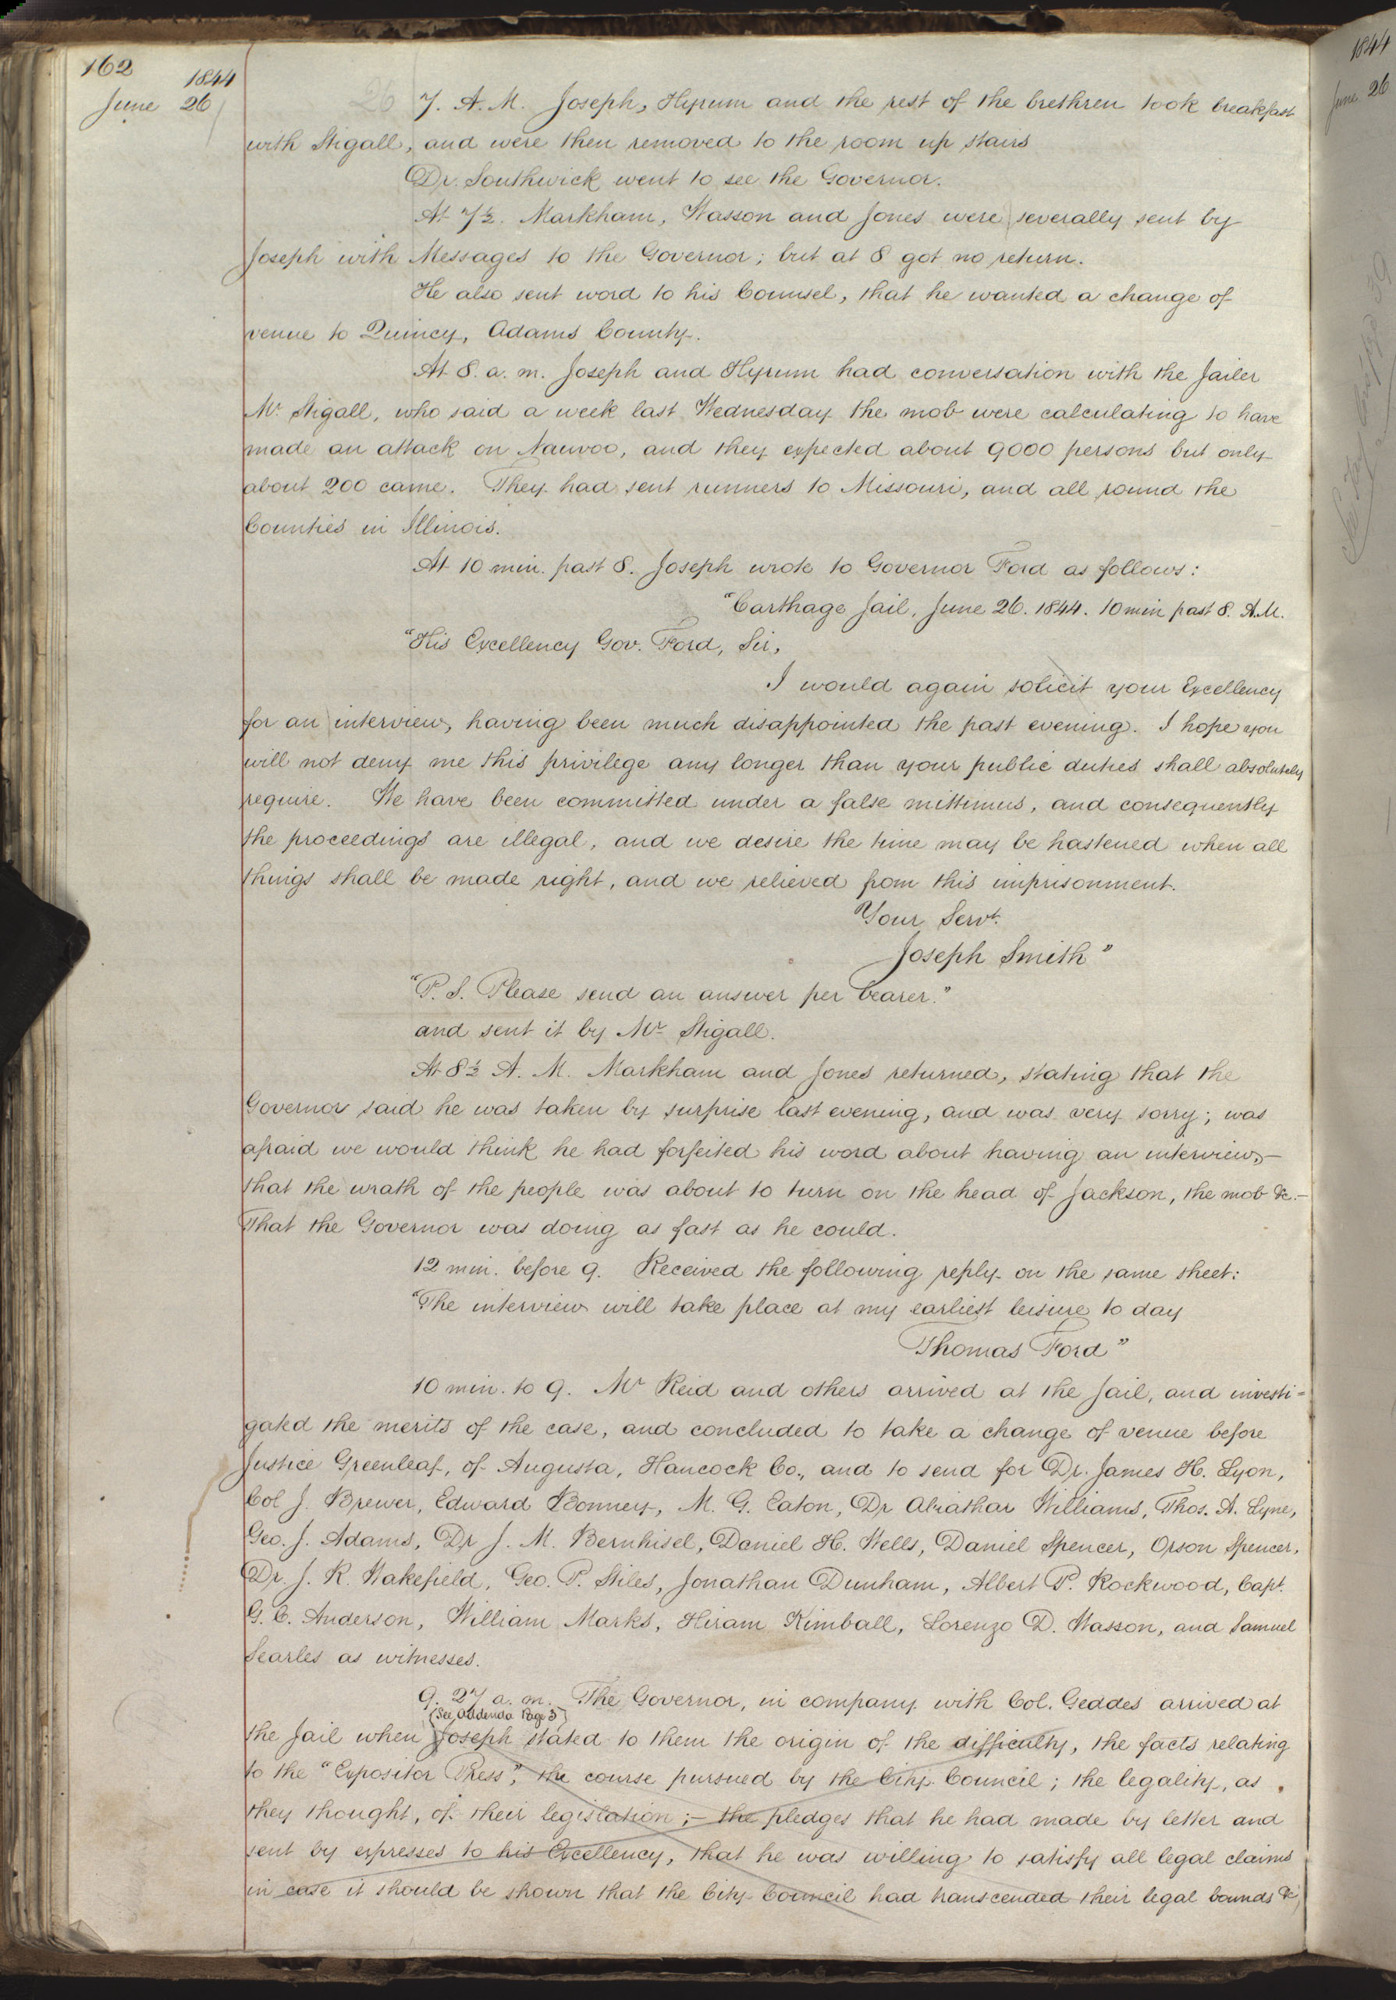 162
1844
June 26
7. A.M. Joseph, Hyrum and the rest of the brethren took breakfast
with Stigall, and were then removed to the room up stairs
Dr. Southwick went to see the Governor.
At 7½. Markham, Wasson and Jones were severally sent by
Joseph with Messages to the Governor; but at 8 got no return.
He also sent word to his Counsel, that he wanted a change of
venue to Quincy, Adams County.
At 8. a. m. Joseph and Hyrum had conversation with the Jailer
Mr. Stigall, who said a week last Wednesday the mob were calculating to have
made an attack on Nauvoo, and they expected about 9000 persons but only
about 200 came. They had sent runners to Missouri, and all round the
Counties in Illinois.
At 10 min. past 8. Joseph wrote to Governor Ford as follows:
"Carthage Jail, June 26. 1844. 10 min past 8. A.M.
"His Excellency Gov. Ford, Sir,
I would again solicit your Excellency
for an interview, having been much disappointed the past evening. I hope you
will not deny me this privilege any longer than your public duties shall absolutely
require. We have been committed under a false mittimus, and consequently
the proceedings are illegal, and we desire the time may be hastened when all
things shall be made right, and we relieved from this imprisonment.
Your Servt.
Joseph Smith"
"P. S. Please send an answer per bearer."
and sent it by Mr Stigall.
At 8½ A. M. Markham and Jones returned, stating that the
Governor said he was taken by surprise last evening, and was very sorry; was
afraid we would think he had forfeited his word about having an interview,—
that the wrath of the people was about to turn on the head of Jackson, the mob &c.—
That the Governor was doing as fast as he could.
12 min. before 9. Received the following reply on the same sheet:
"The interview will take place at my earliest leisure to day
Thomas Ford"
10 min. to 9. Mr Reid and others arrived at the Jail, and investi=
gated the merits of the case, and concluded to take a change of venue before
Justice Greenleaf, of Augusta, Hancock Co., and to send for Dr. James H. Lyon,
Col J. Brewer, Edward Bonney, M. G. Eaton, Dr Abiathar Williams, Thos. A. Lyne,
Geo. J. Adams, Dr J. M. Bernhisel, Daniel H. Wells, Daniel Spencer, Orson Spencer,
Dr. J. R. Wakefield, Geo. P. Stiles, Jonathan Dunham, Albert P. Rockwood, Capt.
G. C. Anderson, William Marks, Hiram Kimball, Lorenzo D. Wasson, and Samuel
Searles as witnesses.
9. 27 a. m. The Governor, in company with Col. Geddes arrived at
(See Addenda Page 3)
the Jail when Joseph stated to them the origin of the difficulty, the facts relating
to the "Expositor Press", the course pursued by the City Council; the legality, as
they thought, of their legislation;— the pledges that he had made by letter and
sent by expresses to his Excellency, that he was willing to satisfy all legal claims
in case it should be shown that the City Council had transcended their legal bounds &c,
1844
June 26